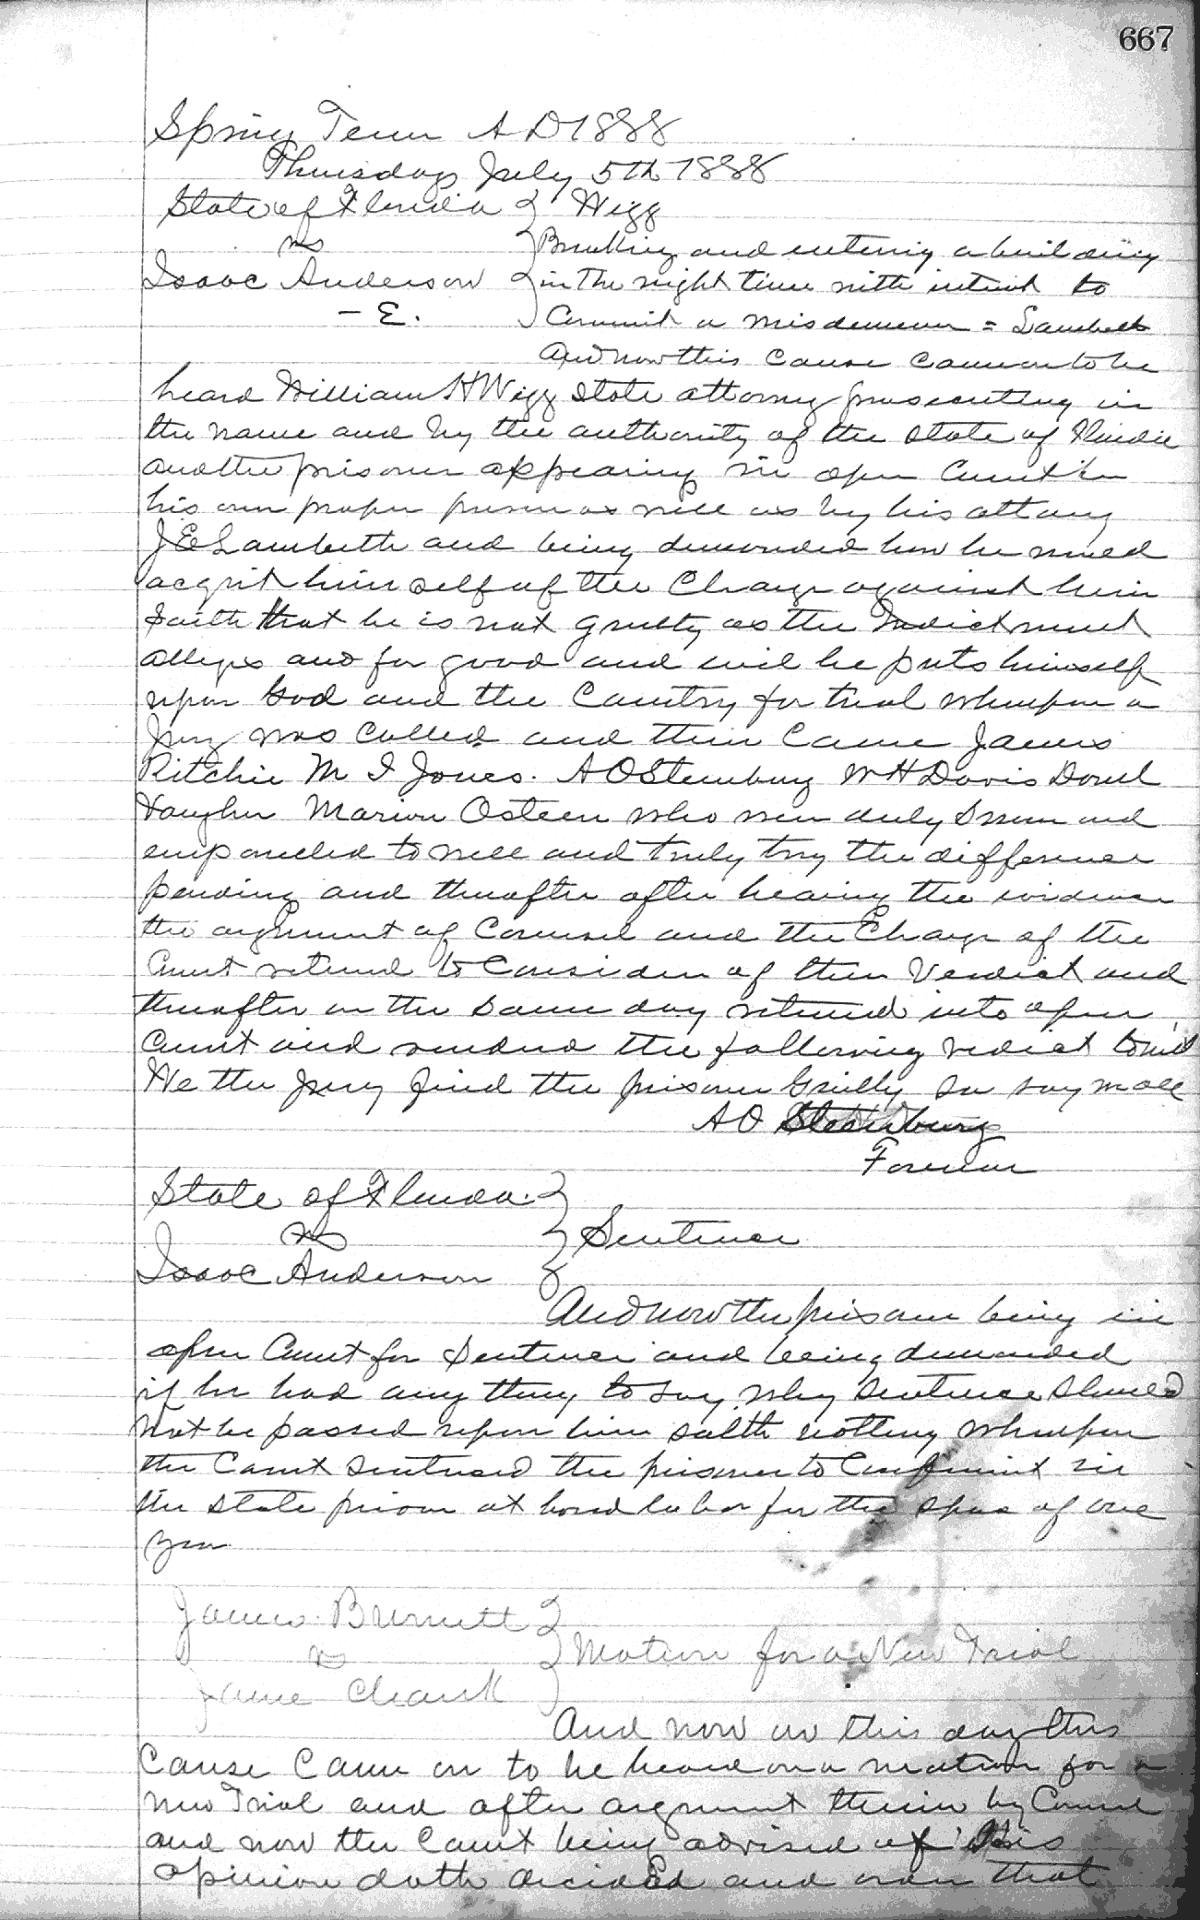 667
Spring Term A D 1888
Thursday July 5th 1888
State of Florida } Wigg
vs } Breaking and entering a building
Isaac Anderson } in the night time with intent to
- E. } Commit a misdemeanor = Lambeth
And now this cause came on to be
heard William H Wigg State attorney prosecuting in
the name and by the authority of the State of Florida
and the prisoner appearing in open Court in
his own proper person as well as by his attorney
J E Lambeth and being demanded how he would
acquit himself of the Charge against him
saith that he is not guilty as the Indictment
alleges and for good and evil he puts himself
upon God and the Country for trial whereupon a
Jury was called and then came James
Ritchie M I Jones. A O Steenburg W H Davis
Vaughn Marion Osteen who were duly sworn and
empaneled to well and truly try the difference
pending and thereafter after hearing the evidence
the argument of Counsel and the Charge of the
Court retired to Consider of their Verdict and
thereafter on the same day returned into open
Court and rendered the following verdict to wit
We the Jury find the prisoner Guilty so say we all
A O Steenburg
Foreman
State of Florida. }
vs } Sentence
Isaac Anderson }
And now the prisoner being in
open Court for Sentence and being demanded
if he had any thing to say why sentence should
not be passed upon him saith nothing whereupon
the Court sentensed the prisoner to in
the State prison at hard labor for the space of one
year
James Burnett }
vs } Motion for a New Trial
Jane Chank }
And now on this day this
Cause Came on to be heard on a motion for a
new Trial and after argument therein by Counsel
and now the Court being advised of this
opinion doth decided and order that